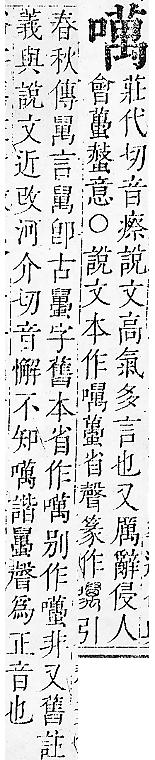 噧
莊代切音瘵說文高氣多言也又厲辭侵人
會蠆螫意○說文本作噧蠆省聲篆作引
春秋傳言即古蠆字舊本省作噧別作非又舊註
義與說文近改河介切音懈不知噧諧蠆聲為正音也